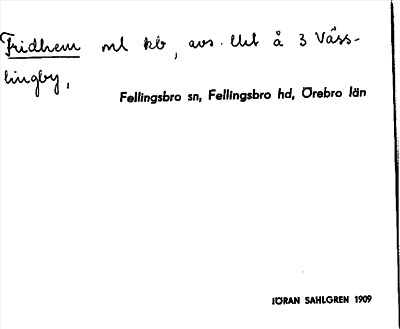 Fridhem ml kb, avs. lht å 3 Väss-
lingby,
Fellingsbro sn, Fellingsbro hd, Örebro län
JÖRAN SAHLGREN 1909